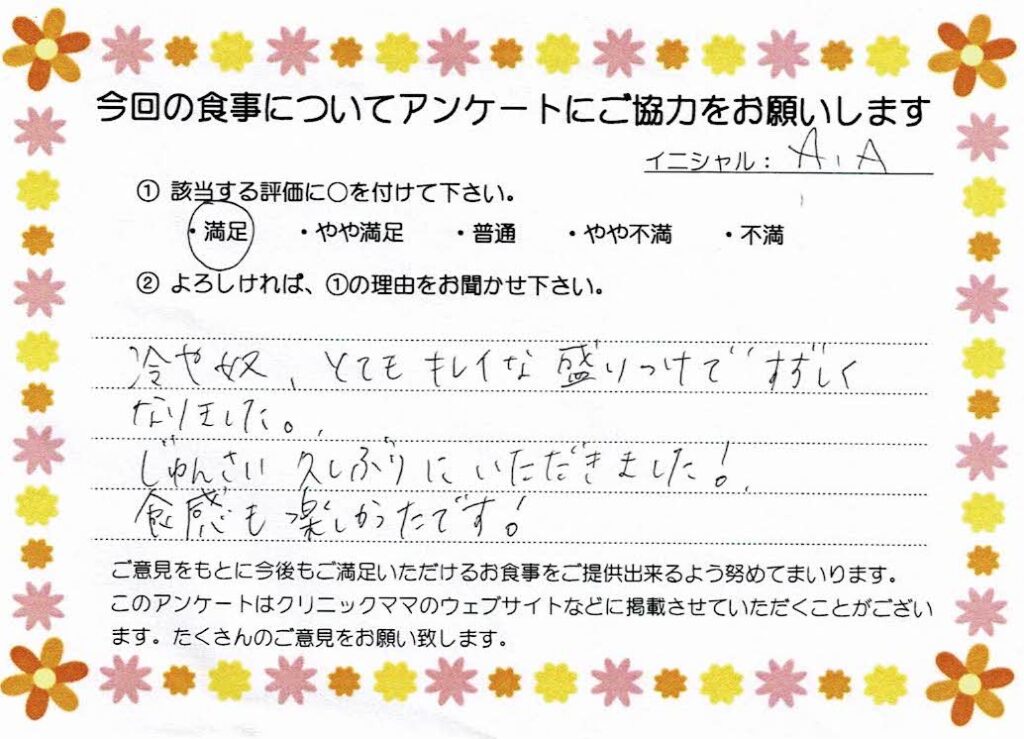 今回の食事についてアンケートにご協力をお願いします
イニシャル： A.A
① 該当する評価に○を付けて下さい。
・満足 ・やや満足 ・普通 ・やや不満 ・不満
② よろしければ、①の理由をお聞かせ下さい。
冷や奴、とてもキレイな盛りつけですずしく
なりました。
じゅんさい久しぶりにいただきました！
食感も楽しかったです！
ご意見をもとに今後もご満足いただけるお食事をご提供出来るよう努めてまいります。
このアンケートはクリニックママのウェブサイトなどに掲載させていただくことがござい
ます。たくさんのご意見をお願い致します。